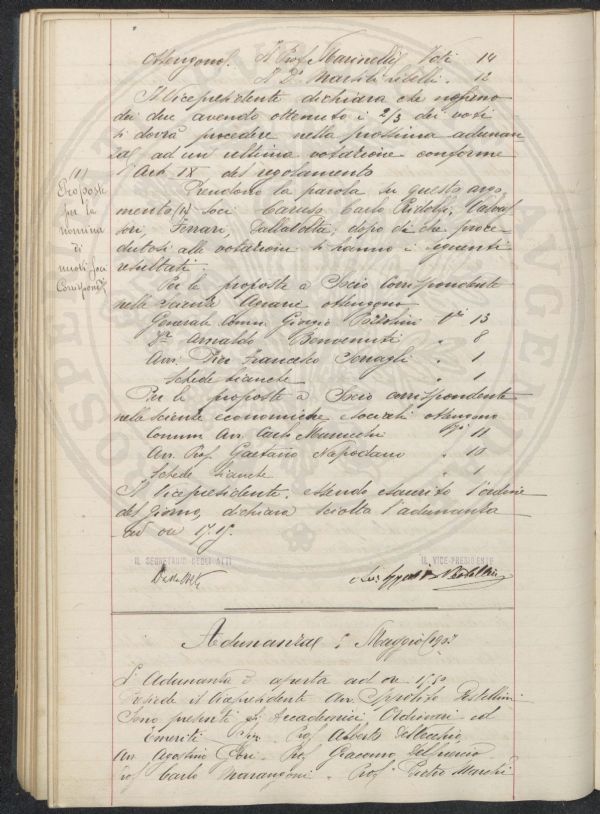 Ottengono: Il Prof. Marinelli Voti 14
Il Dr. Martelli 12
Il Vicepresidente dichiara che nessuno
dei due avendo ottenuto i 2/3 dei voti
si dovrà procedere nella prossima adunan
za ad un'ultima votazione conforme
l'Art. IX del regolamento
(1)
Proposte
per la
nomina
di
nuovi Soci
Corrispond.
Prendono la parola su questo argo
mento (1) i soci Caruso, Carlo Ridolfi,
Ferrari, dopo di che proce
dutosi alle votazione si hanno i seguenti
resultati
Per le proposte a Socio Corrispondente
nelle scienze Agrarie ottengono
Generale Comm. Giorgio Vti 13
Dr. Arnaldo Bonvenuti " 8
Avv. Francesco " 1
Schede bianche " 1
Per le proposte a Socio corrispondente
nelle scienze economiche e sociali ottengono
Comm. Avv. Carlo Vti 11
Avv. Prof. Gaetano Napodano " 10
Schede bianche " 1
Il Vicepresidente, essendo esaurito l'ordine
del giorno, dichiara sciolta l'adunanza
ad ore 17.
IL SEGRETARIO DEGLI ATTI IL VICE-PRESIDENTE
Adunanza Maggio
L'Adunanza è aperta ad ore
Presiede il Vicepresidente Avv. Ippolito Pestellini
Sono presenti gli Accademici Ordinari ed
Emeriti Prof. Alberto Del Vecchio
Avv. Agostino Gori. Prof. Giacomo Del
Prof. Carlo Marangoni. Prof. Pietro Marchi